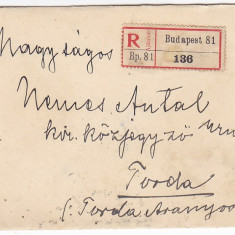 Nagyságos
R Budapest 81
Bp. 81 136
Nemes Antal
kir. közjegyző Urn
Torda
(: Torda Aranyos